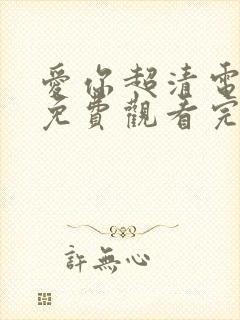 愛你超清電
免費觀看完
許無心